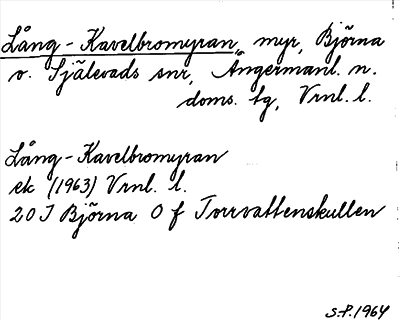 Lång-Kavelbromyran, myr, Björna
o. Själevads snr, Ångermanl. n.
doms. tg, Vrnl. l.
Lång-Kavelbromyran
ek (1963) Vrnl. l.
20 I Björna O f Torrvattenskullen
S.P.1964